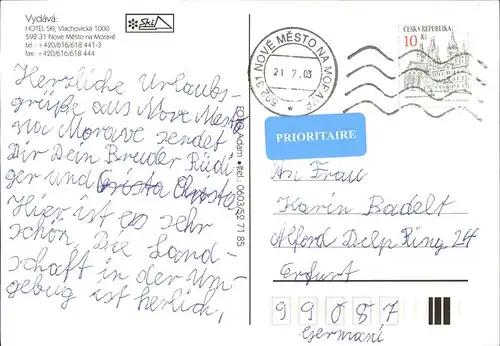 Vydává:
HOTEL SKI, Vlachovická 1000
592 31 Nové Město na Moravě
tel : +420/616/618 441-3
fax: +420/616/618 444
Ski
Herzliche Urlaubs-
grüße aus Nove Mesto
na Morave sendet
Dir Dein Breuder Rüdi
ger und Christa
Hier ist es sehr
schön. Die Land-
schaft in der Um-
gebug ist herlich,
Adam • tel.: 0603/52 71 85
592 31 NOVÉ MĚSTO NA MORAVĚ
21.7.03
ČESKÁ REPUBLIKA
10 Kč
PRIORITAIRE
An Frau
Karin Badelt
Alford Delp Ring 24
Erfurt
99087
Germani